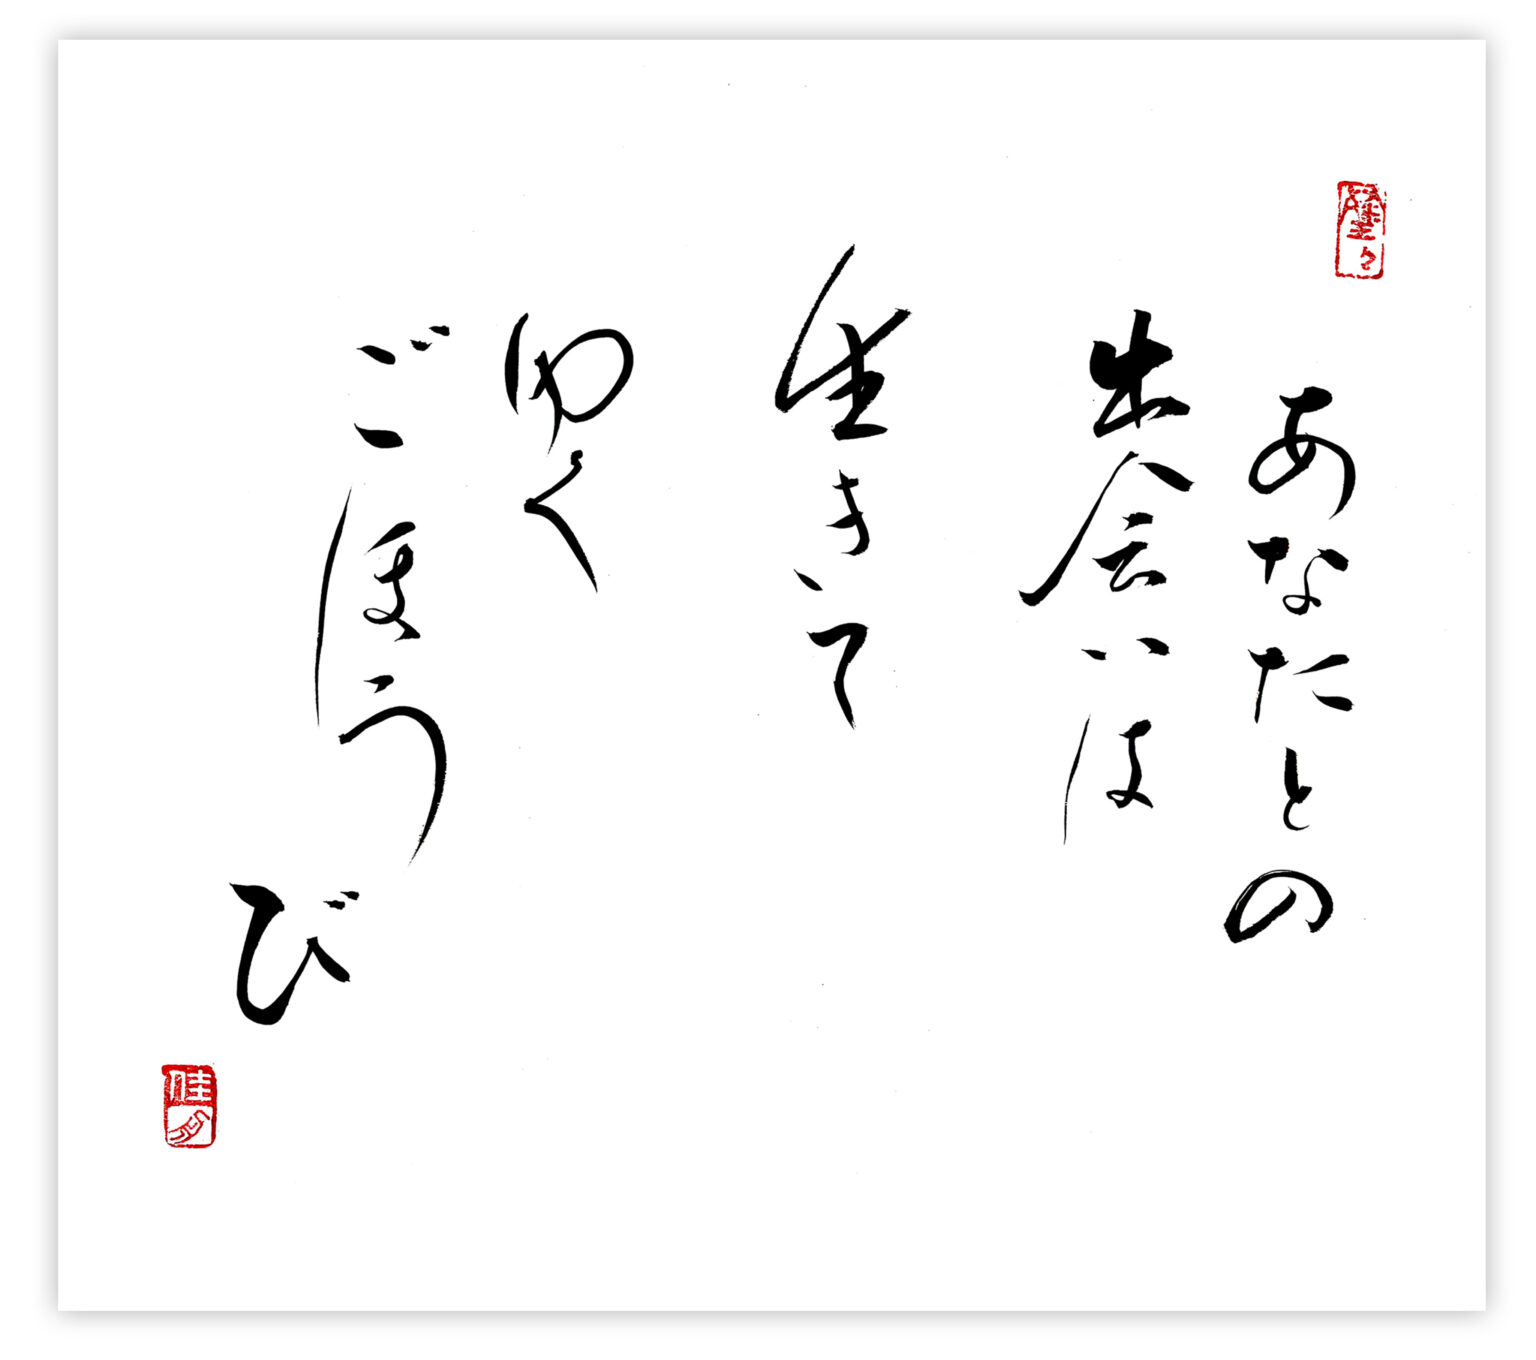 あなたとの
出会いは
生きて
ゆく
ごほうび